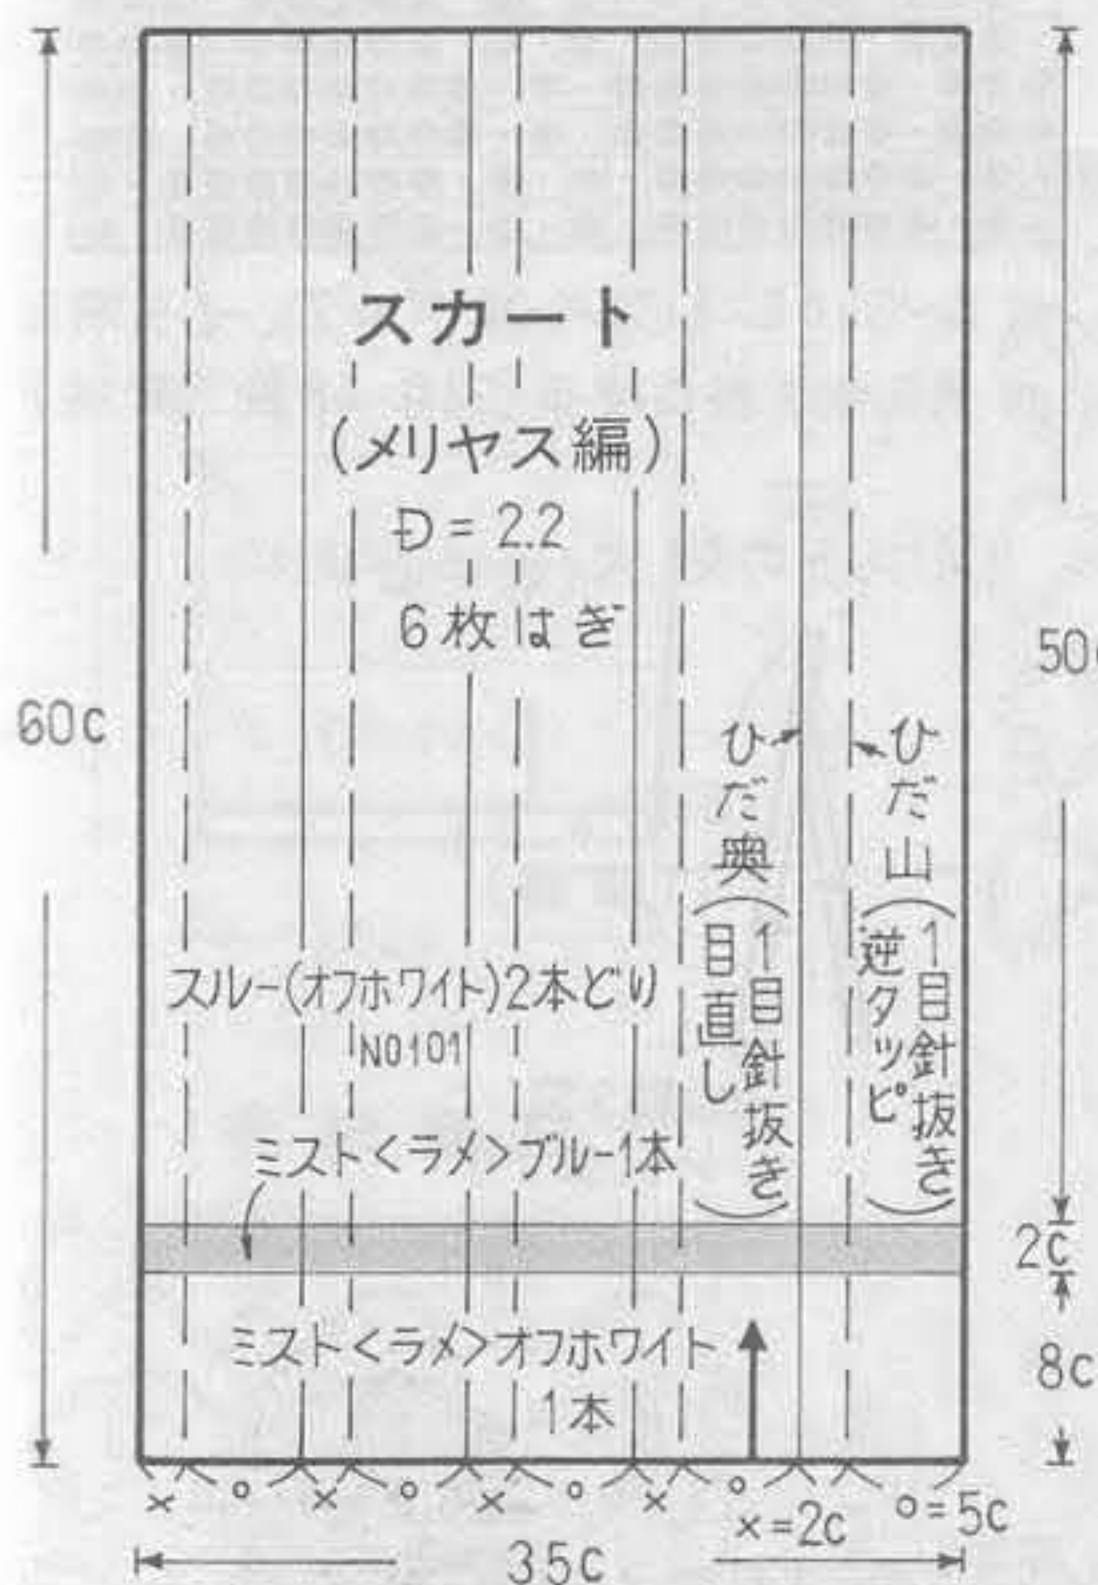 スカート
(メリヤス編)
D = 2.2
6枚はぎ
60c
50c
ひだ奥(1目針抜き目直し)
ひだ山(1目針抜き逆タッピ)
スルー(オフホワイト)2本どり
NO101
ミスト<ラメ>ブルー1本
2c
ミスト<ラメ>オフホワイト
1本
8c
× ○ × ○ × ○ × ○
×=2c ○=5c
35c